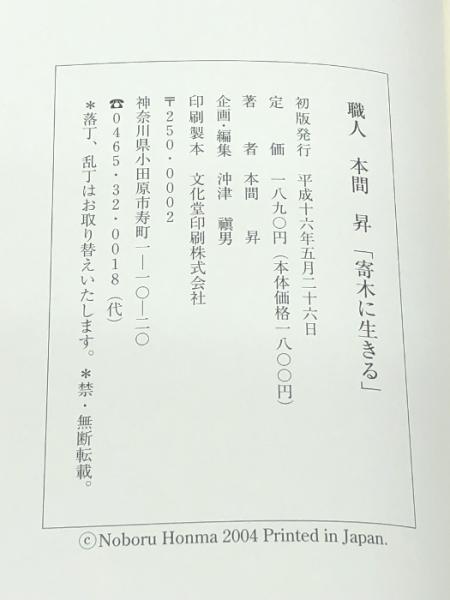 職人 本間 昇「寄木に生きる」
初版発行 平成十六年五月二十六日
定 価 一八九〇円(本体価格一八〇〇円)
著 者 本間 昇
企画・編集 沖津 禛男
印刷製本 文化堂印刷株式会社
〒250・0002
神奈川県小田原市寿町一―一〇―二〇
☎0465・32・0018(代)
*落丁、乱丁はお取り替えいたします。*禁・無断転載。
©Noboru Honma 2004 Printed in Japan.